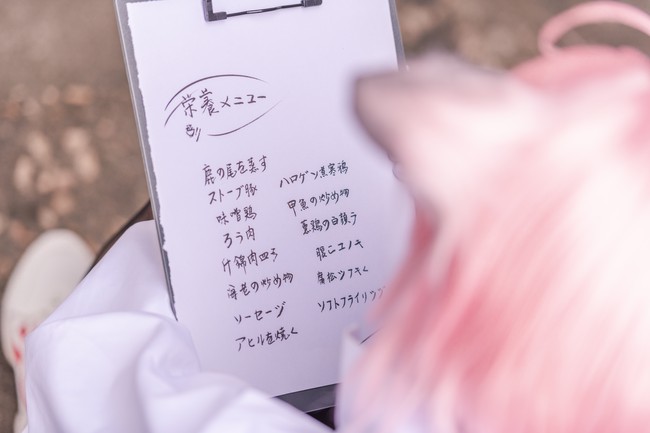 栄養メニュー
鹿の尾を蒸す
ストーブ豚
味噌鶏
ろう肉
什錦肉四ろ
海老の炒め物
ソーセージ
アヒルを焼く
ハロゲン煮寒鶏
甲魚の炒め物
蒸鶏の白頬ラ
ソフトフライリブ